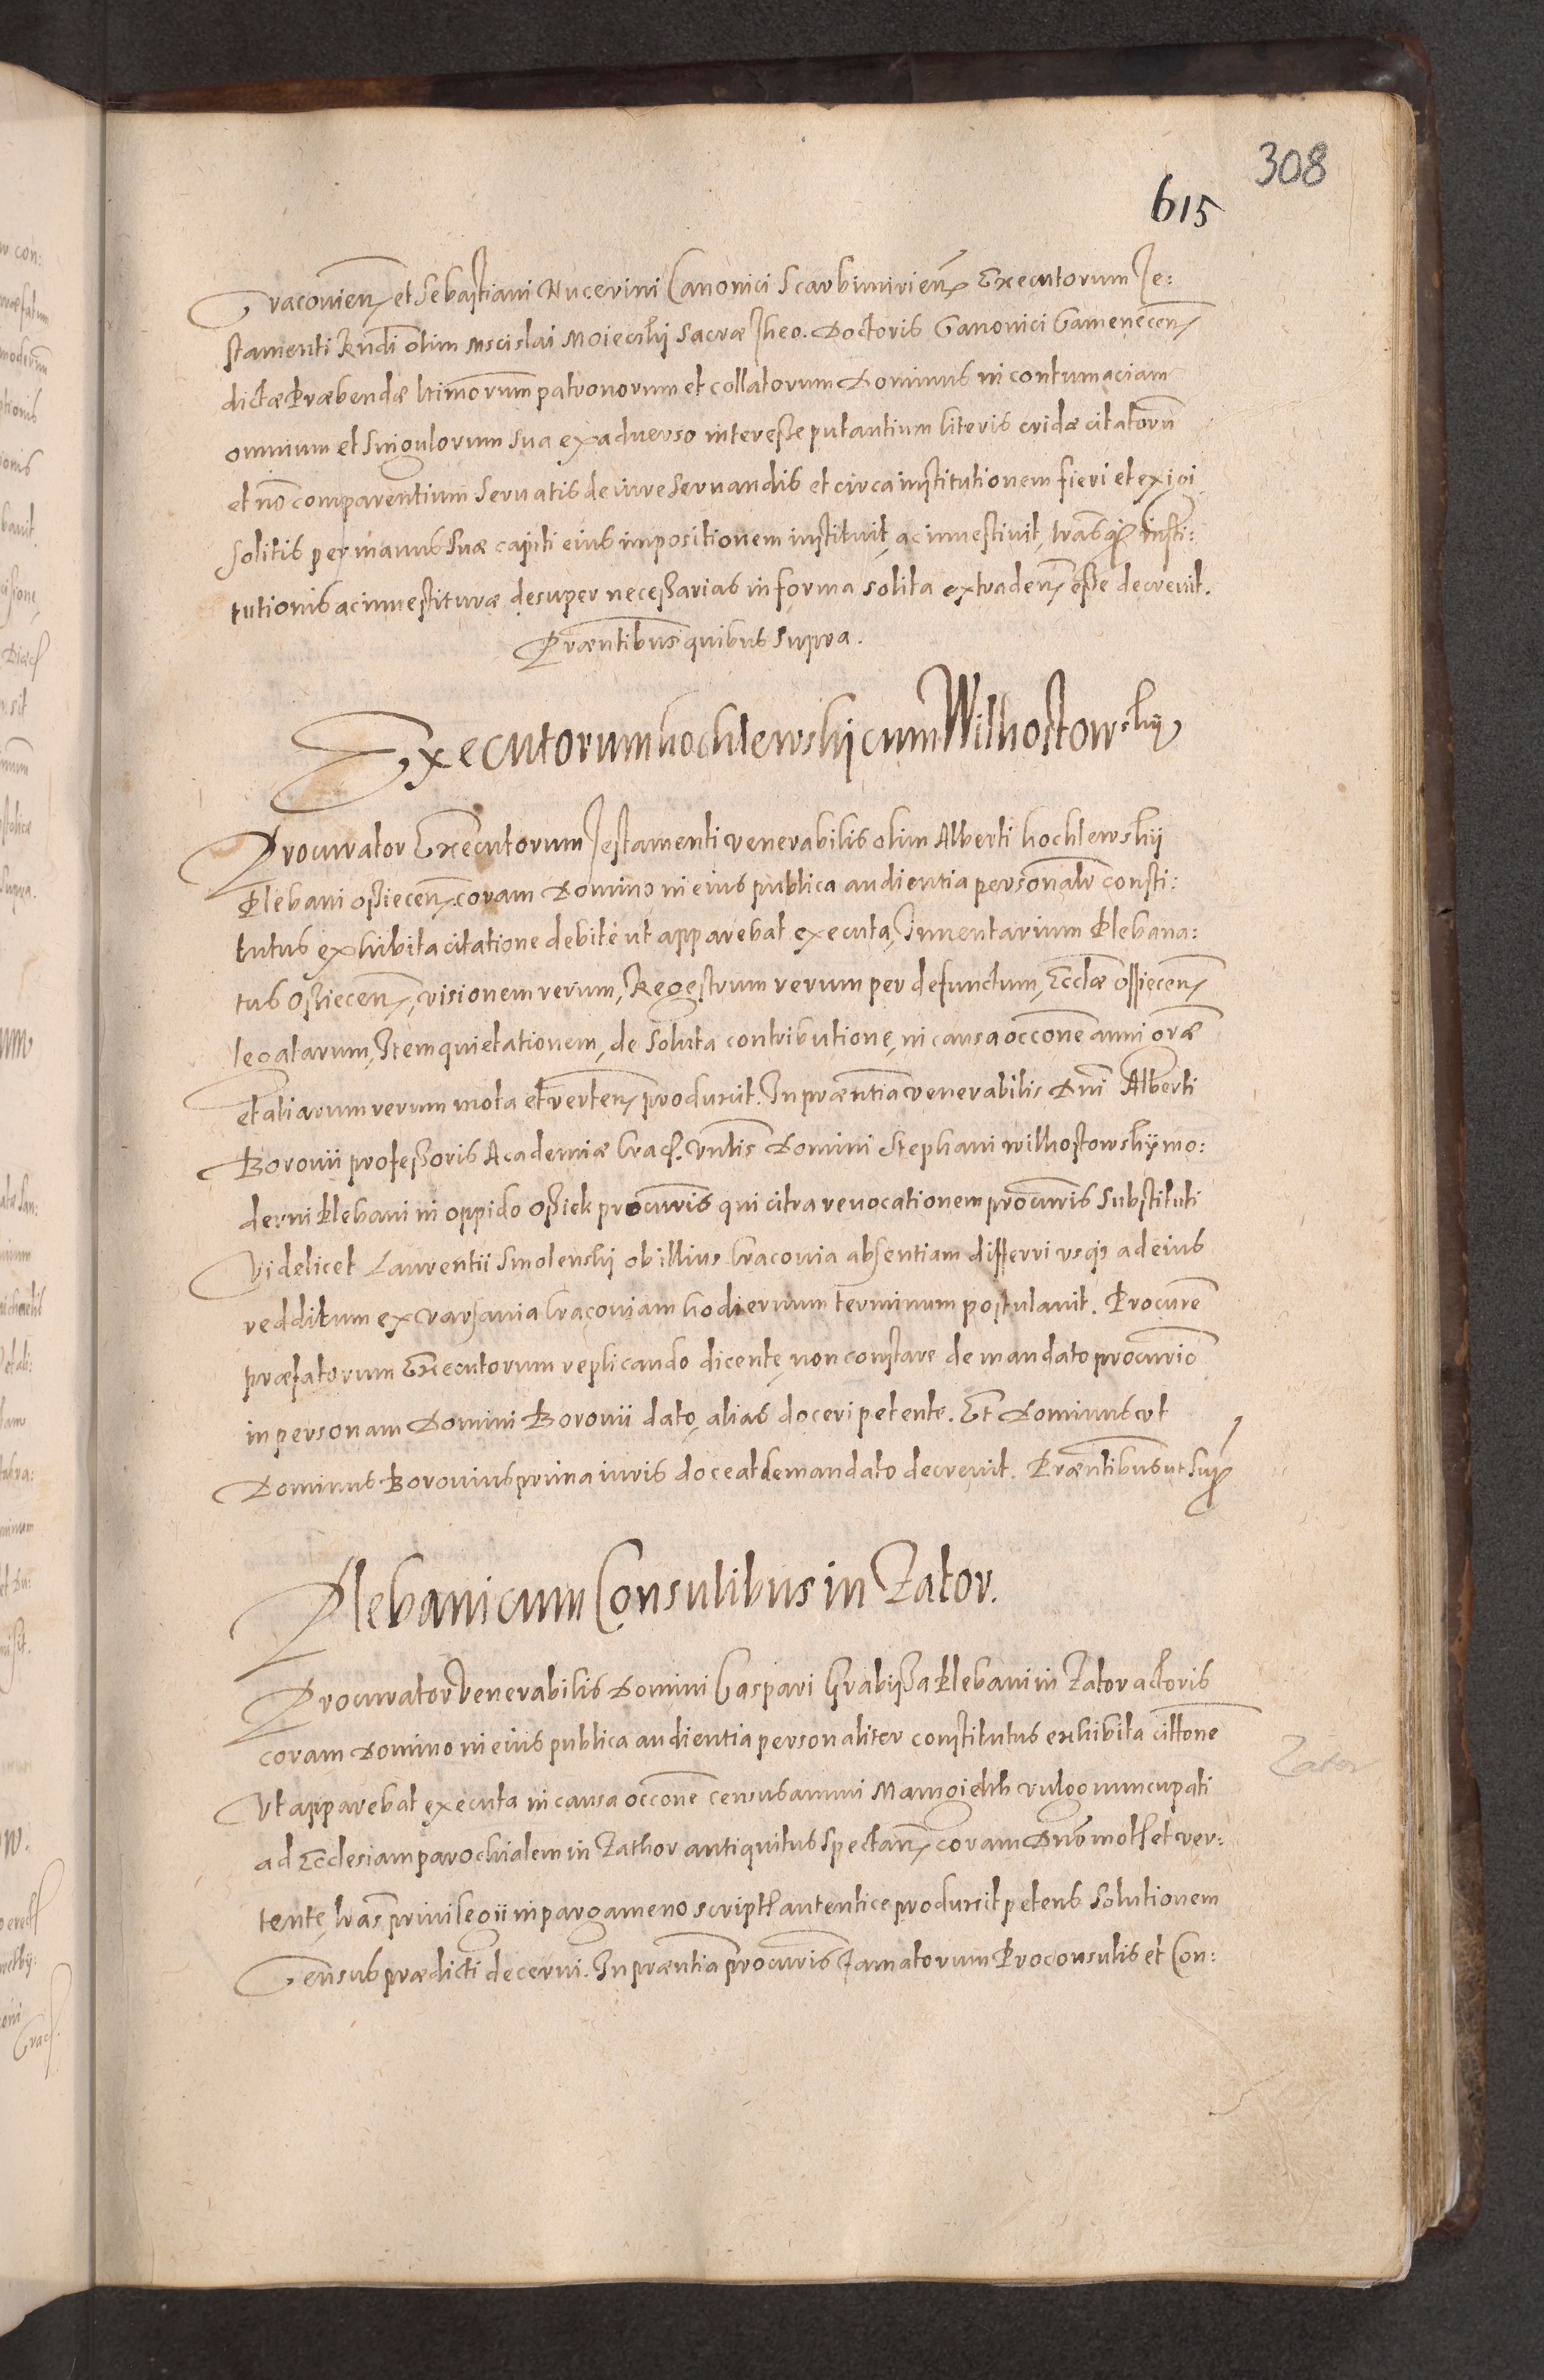 308
615
Cracovien et Sebastiani Nucerini Canonici Scarbimirien Executorum Te:
stamenti Rndi olim Mscislai Moiecskij Sacræ Theo. Doctoris Canonici Camenecen
dictæ Præbendæ ltimorum patronorum et collatorum Dominus in contumaciam
omnium et singulorum sua ex adverso interesse putantium literis cridæ citatoru
et no comparentium servatis de iure servandis et circa institutionem fieri et exigi
solitis per manus suæ capiti eius impositionem instituit, ac investivit, lras insti:
tutionis ac investituræ desuper necessarias in forma solita extraden esse decrevit.
Præntibus quibus supra.
Executorum kochlewskij cum Wilkostowskij
Procurator Executorum Testamenti venerabilis olim Alberti kochlewskij
Plebani Ossiecen coram Domino in eius publica audientia personalr consti:
tutus exhibita citatione debitè ut apparebat executa, Inventarium Plebana:
tus Ossiecen, visionem rerum, Regestrum rerum per defunctum, Eccłæ Ossiecen
legatarum, Item quietationem, de soluta contributione, in causa occone anni græ
et aliarum rerum mota et verten produxit. In præntia venerabilis Dni Alberti
Borovii professoris Academiæ Crac. Vntis Domini Stephani wilkostowskij mo:
derni Plebani in oppido Ossiek procuris qui citra revocationem procuris substituti
Videlicet Laurentii Smolenskj ob illius Cracovia absentiam differri usq ad eius
redditum ex varsavia Cracoviam hodiernum terminum postulavit. Procure
præfatorum Executorum replicando dicente, non constare de mandato procurio
in personam Domini Borovii dato, alias doceri petente. Et Dominus ut
Dominus Borovius prima iuris doceat de mandato decrevit. Præntibus ut sup
Plebani cum Consulibus in Zator.
Procurator Venerabilis Domini Caspari Grabissa Plebani in Zator actoris
coram Domino in eius publica audientia personaliter constitutus exhibita cittone
Zator
Ut apparebat executa in causa occone census annui Mamgielth vulgo nuncupati
ad Ecclesiam parochialem in Zathor antiquitus spectan coram Dno mot et ver:
tente, lras privilegii in pargameno script autentice produxit petens solutionem
Census prædicti decerni. In præntia procuris famatorum Proconsulis et Con: